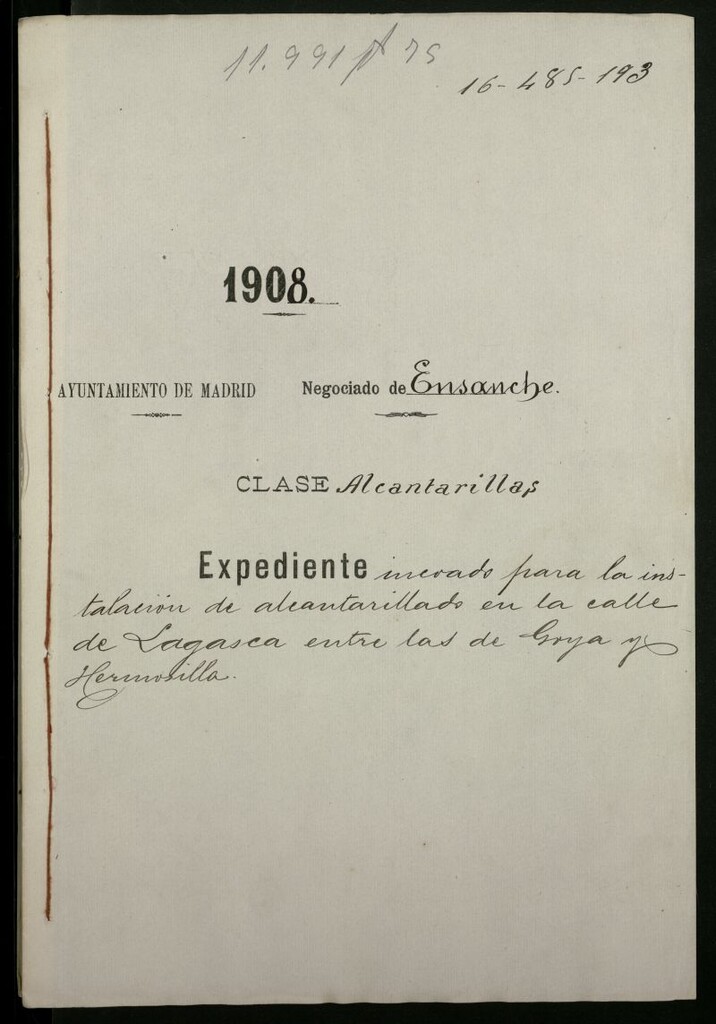 11.991 75
16-485-193
1908.
AYUNTAMIENTO DE MADRID Negociado de Ensanche.
CLASE Alcantarillas
Expediente incoado para la ins-
talación de alcantarillado en la calle
de Lagasca entre las de Goya y
Hermosilla.